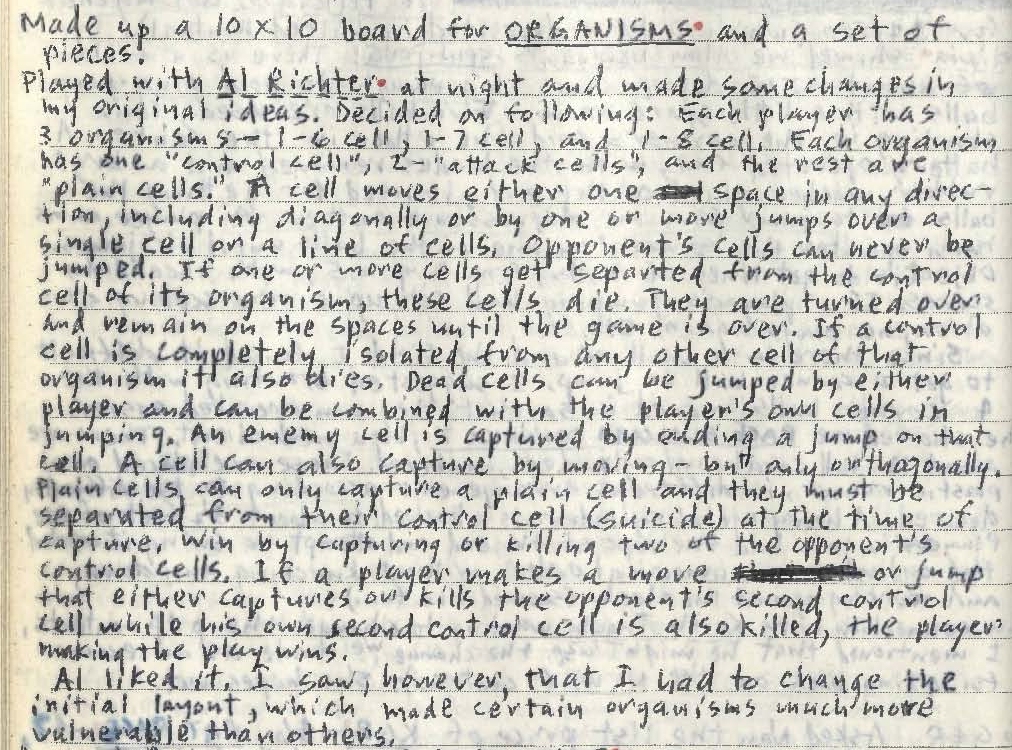 Made up a 10 x 10 board for ORGANISMS and a set of
pieces.
Played with Al Richter at night and made some changes in
my original ideas. Decided on following: Each player has
3 organisms - 1-6 cell, 1-7 cell, and 1-8 cell. Each organism
has one "control cell", 2-"attack cells", and the rest are
"plain cells." A cell moves either one space in any direc-
tion, including diagonally or by one or more jumps over a
single cell or a line of cells. Opponent's cells can never be
jumped. If one or more cells get separted from the control
cell of its organism, these cells die. They are turned over
and remain on the spaces until the game is over. If a control
cell is completely isolated from any other cell of that
organism it also dies. Dead cells can be jumped by either
player and can be combined with the player's own cells in
jumping. An enemy cell is captured by ending a jump on that
cell. A cell can also capture by moving - but only orthagonally.
Plain cells can only capture a plain cell and they must be
separated from their control cell (suicide) at the time of
capture. Win by capturing or killing two of the opponent's
control cells. If a player makes a move or jump
that either captures or kills the opponent's second control
cell while his own second control cell is also killed, the player
making the play wins.
Al liked it. I saw, however, that I had to change the
initial layout, which made certain organisms much more
vulnerable than others.